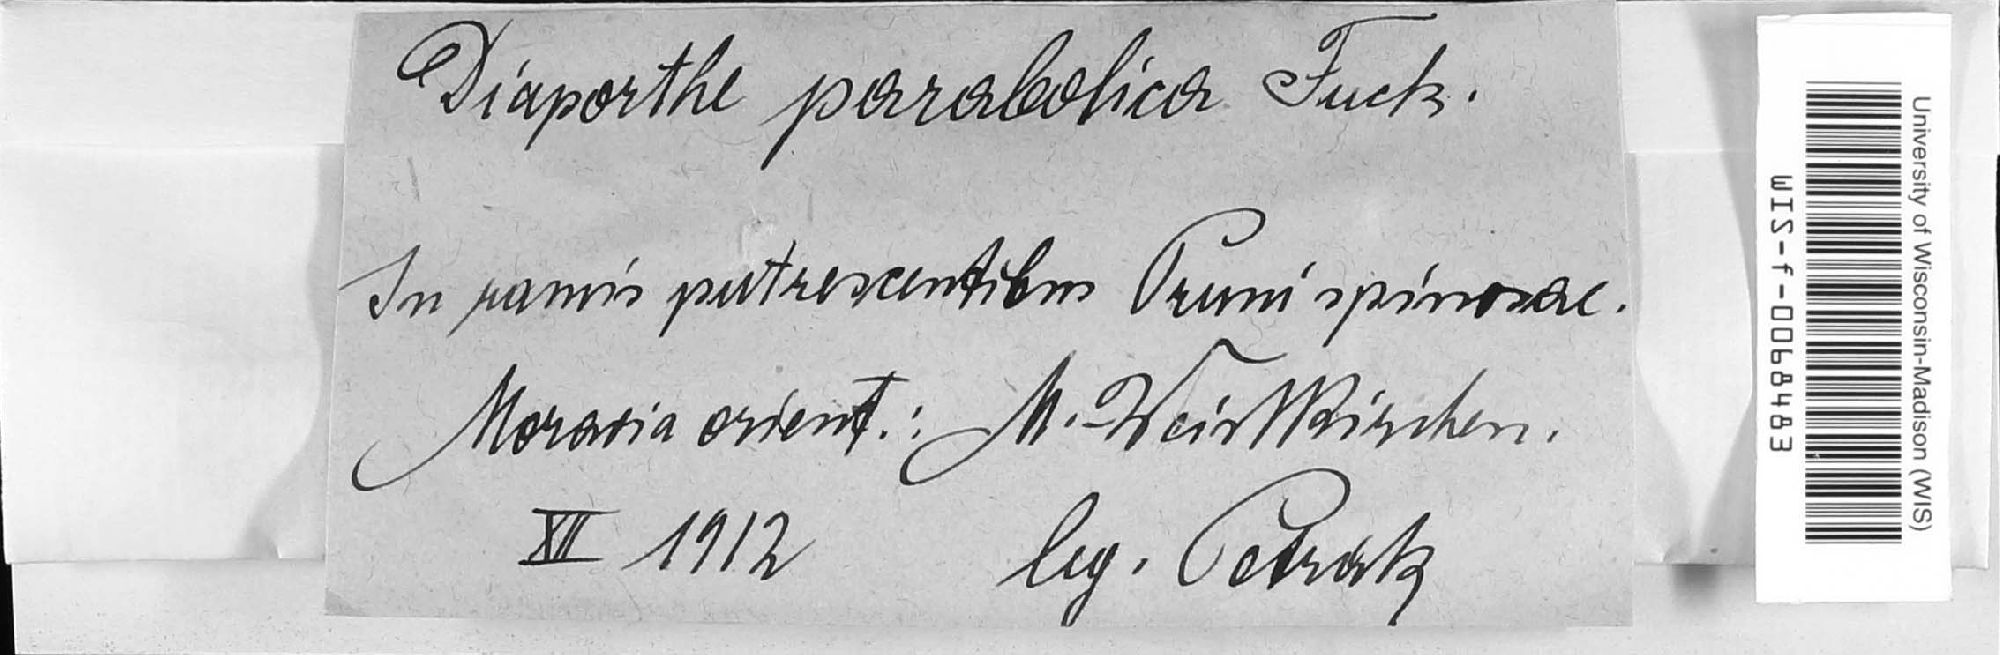 Diaporthe parabolica Fuck.
In ramis putrescentibus Pruni spinosae.
Moravia orient.: M.-Weisskirchen.
XII 1912 leg. Petrak
University of Wisconsin-Madison (WIS)
WIS-f-0068483